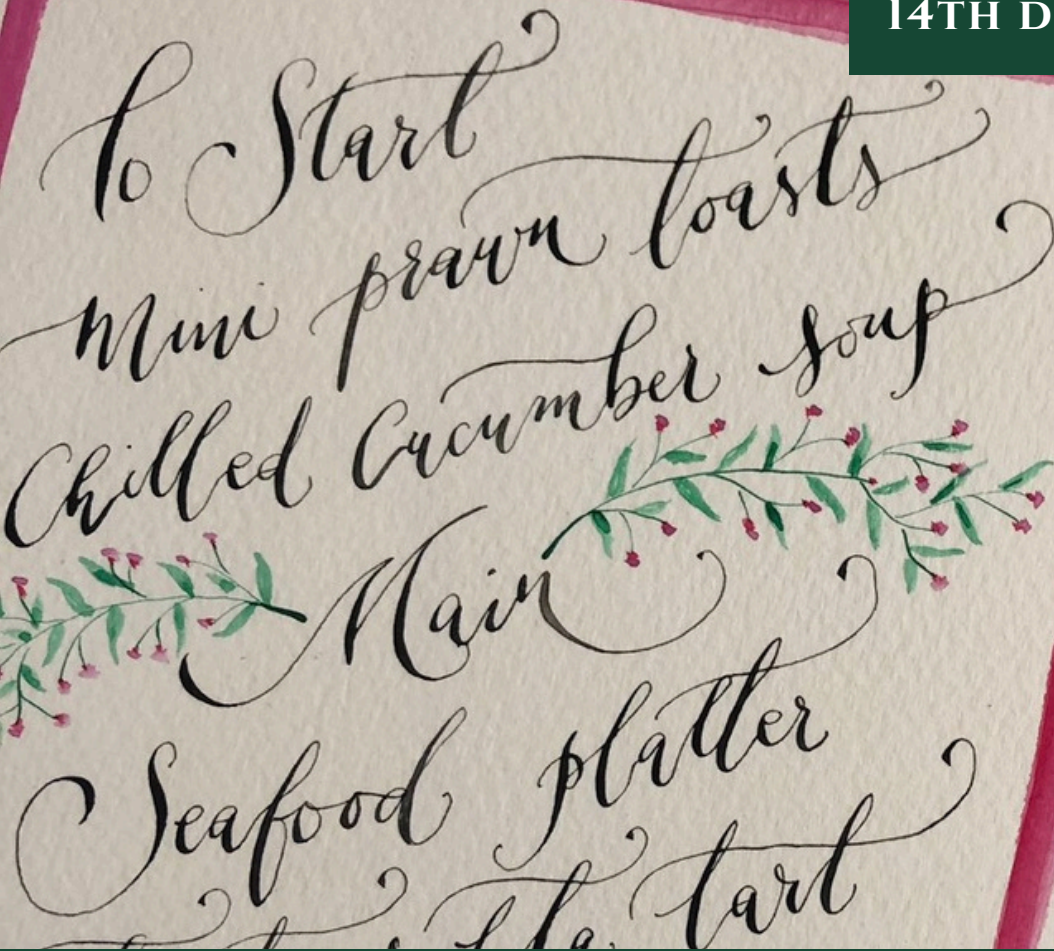 14TH D
To Start
Mini prawn toasts
Chilled Cucumber soup
Main
Seafood platter
tart